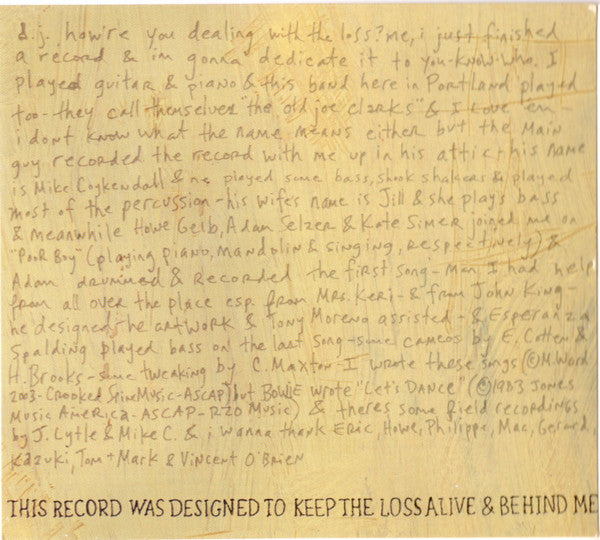 d.j. how're you dealing with the loss? me, i just finished
a record & im gonna dedicate it to you-know-who. I
played guitar & piano & this band here in Portland played
too--they call themselves "the old joe clarks" & I love 'em-
i dont know what the name means either but the main
guy recorded the record with me up in his attic + his name
is Mike Coykendall & he played some bass, shook shakers & played
most of the percussion - his wife's name is Jill & she plays bass
& meanwhile Howe Gelb, Adam Selzer & Kate Simer joined me on
"Poor Boy" (playing piano, mandolin & singing, respectively) &
Adam drummed & recorded the first song - man, I had help
from all over the place esp. from Mrs. Keri - & from John King -
he designed the artwork & Tony Moreno assisted - & Esperanza
Spalding played bass on the last song - some cameos by E. Cotten &
H. Brooks - some tweaking by C. Maxton - I wrote these songs (©M. Ward
2003 - Crooked Spine Music - ASCAP) but BOWIE wrote "Let's Dance" (©1983 Jones
Music America - ASCAP - RZO Music) & theres some field recordings
by J. Lytle & Mike C. & i wanna thank Eric, Howe, Philippe, Mac, Gerard,
Kazuki, Tom + Mark & Vincent O'Brien
THIS RECORD WAS DESIGNED TO KEEP THE LOSS ALIVE & BEHIND ME